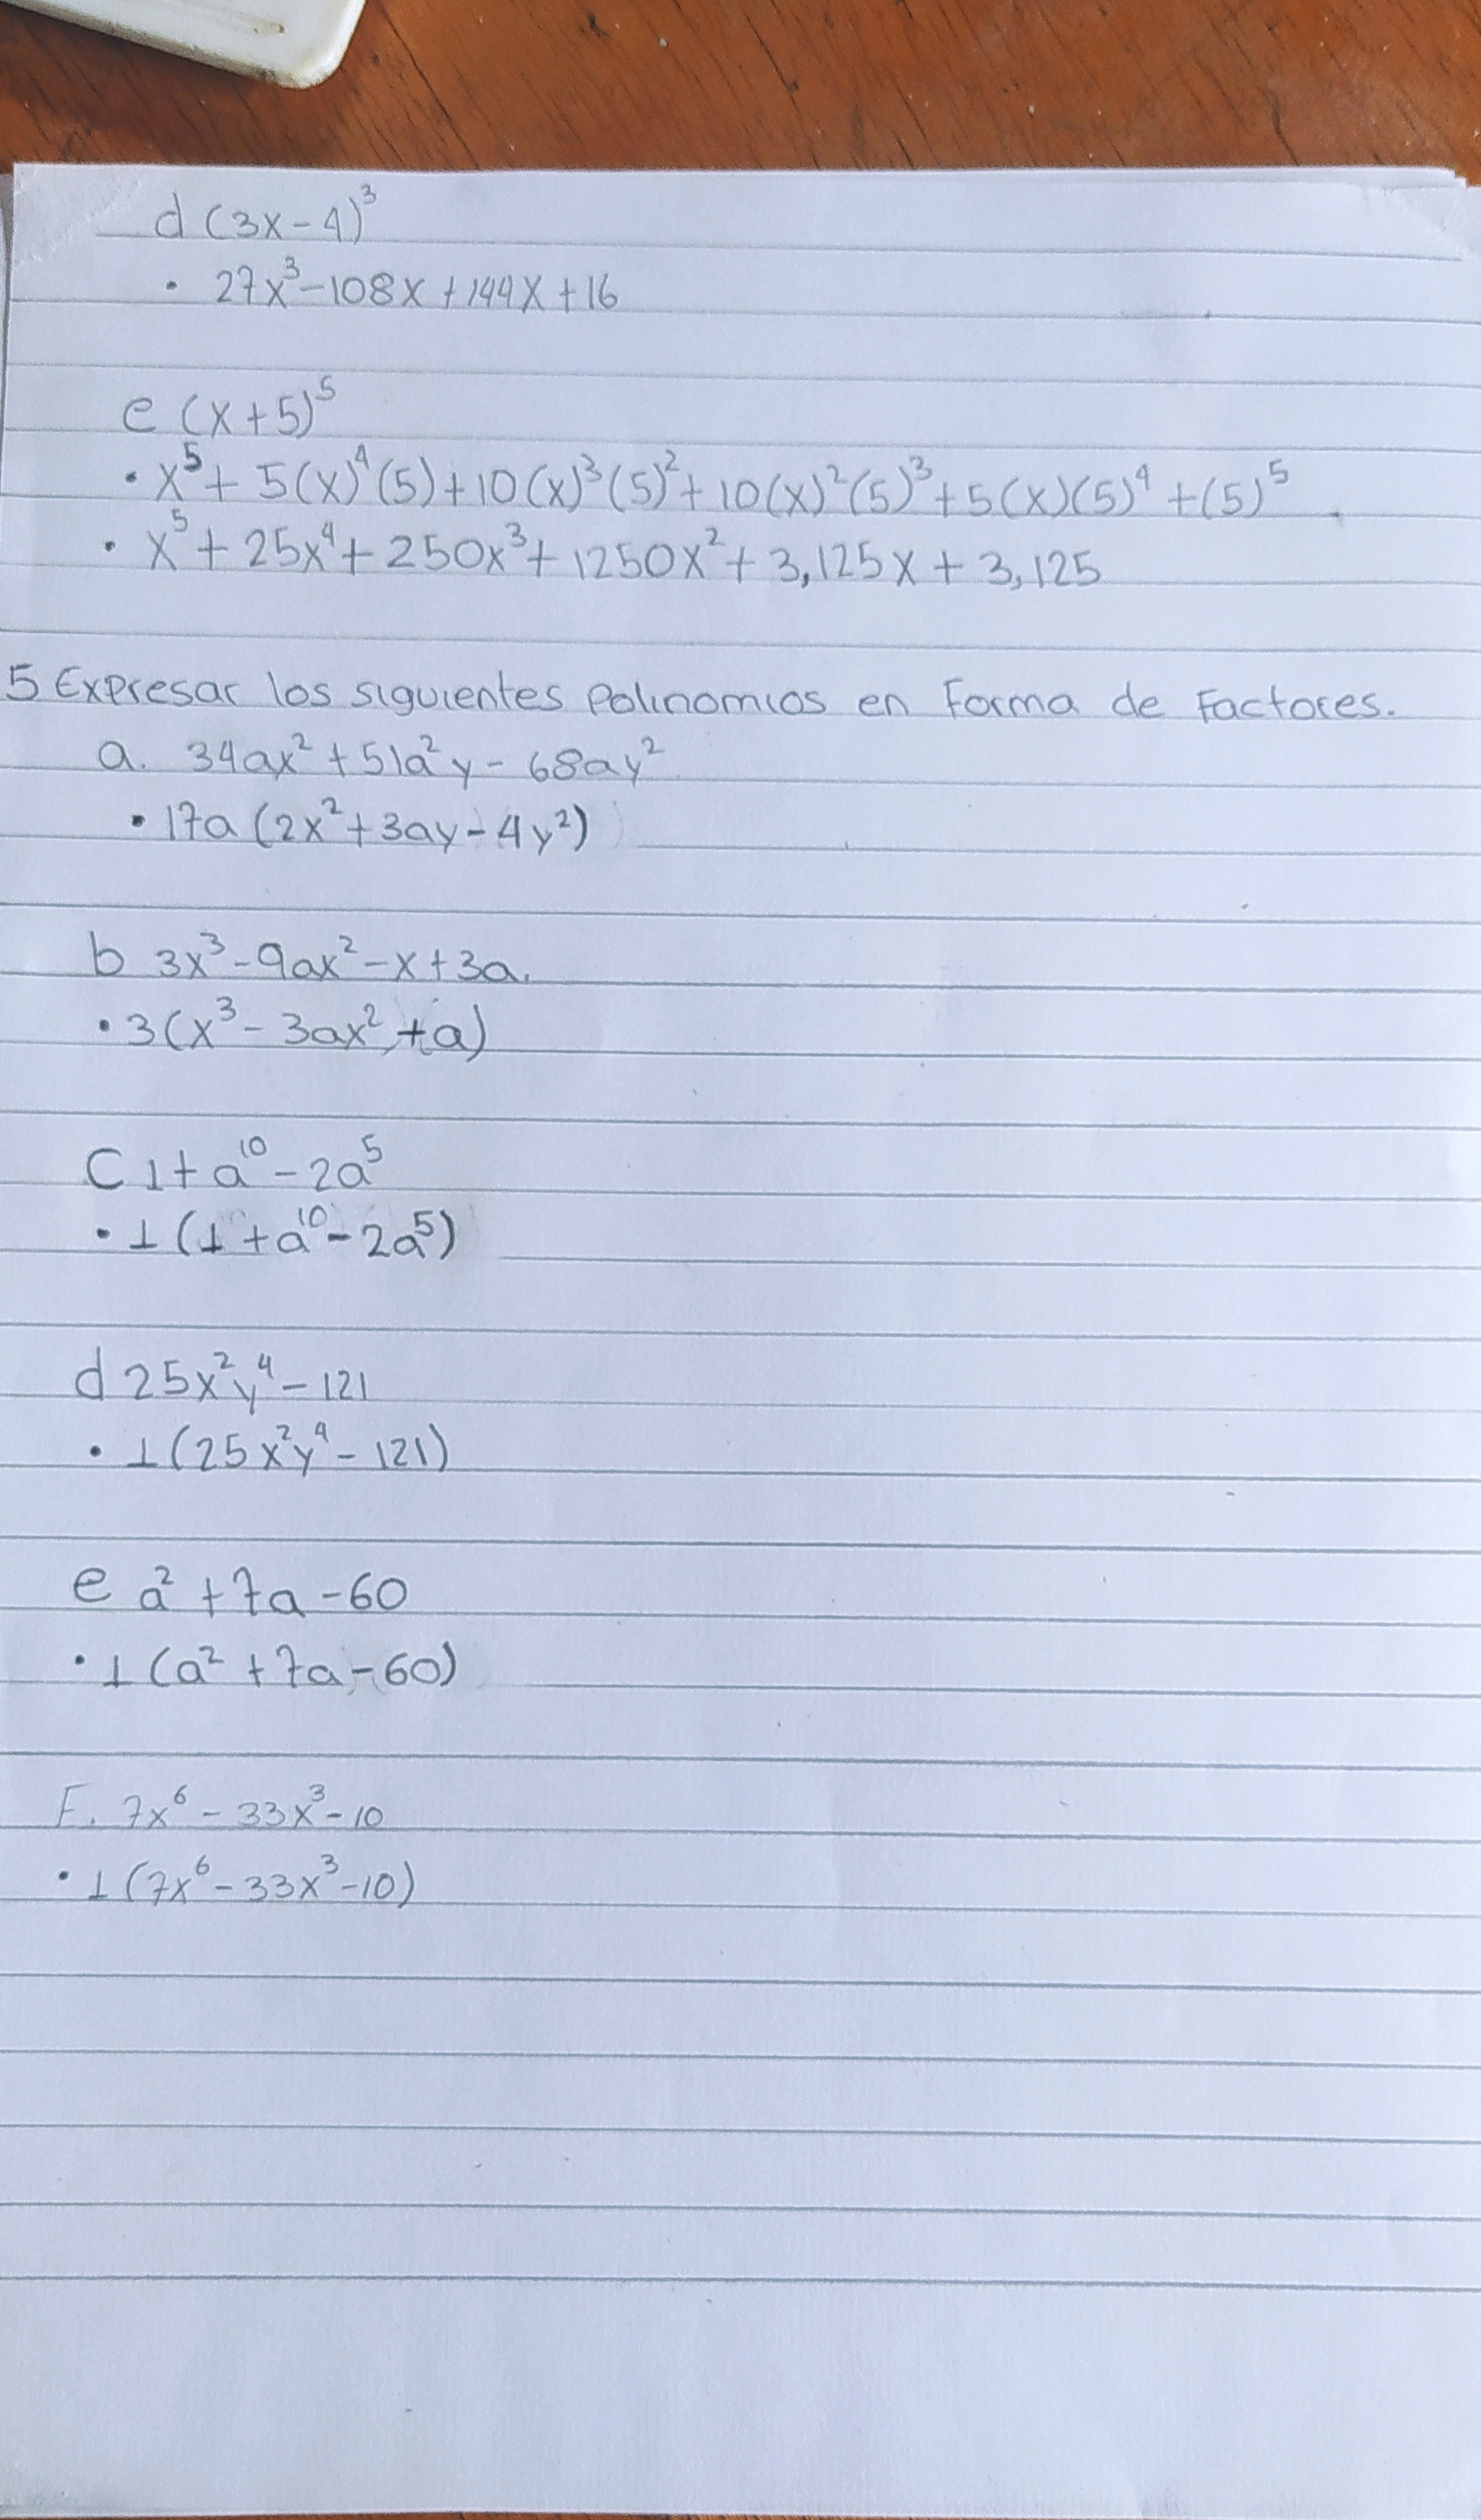 d (3x-4)³
• 27x³-108x+144x+16
e (x+5)⁵
• x⁵+5(x)⁴(5)+10(x)³(5)²+10(x)²(5)³+5(x)(5)⁴+(5)⁵
• x⁵+25x⁴+250x³+1250x²+3,125x+3,125
5 Expresar los siguientes Polinomios en Forma de Factores.
a. 34ax²+51a²y-68ay²
• 17a(2x²+3ay-4y²)
b 3x³-9ax²-x+3a.
• 3(x³-3ax²+a)
C 1+a¹⁰-2a⁵
• 1(1+a¹⁰-2a⁵)
d 25x²y⁴-121
• 1(25x²y⁴-121)
e a²+7a-60
• 1(a²+7a-60)
F. 7x⁶-33x³-10
• 1(7x⁶-33x³-10)